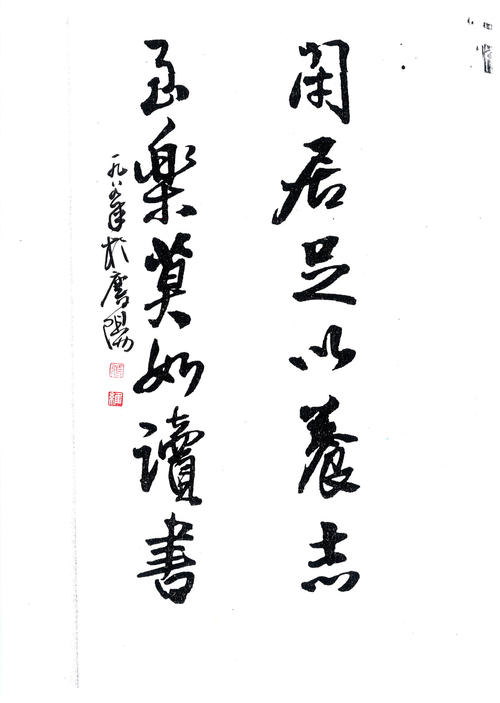 閑居足以養志
至樂莫如讀書
一九八年於陽